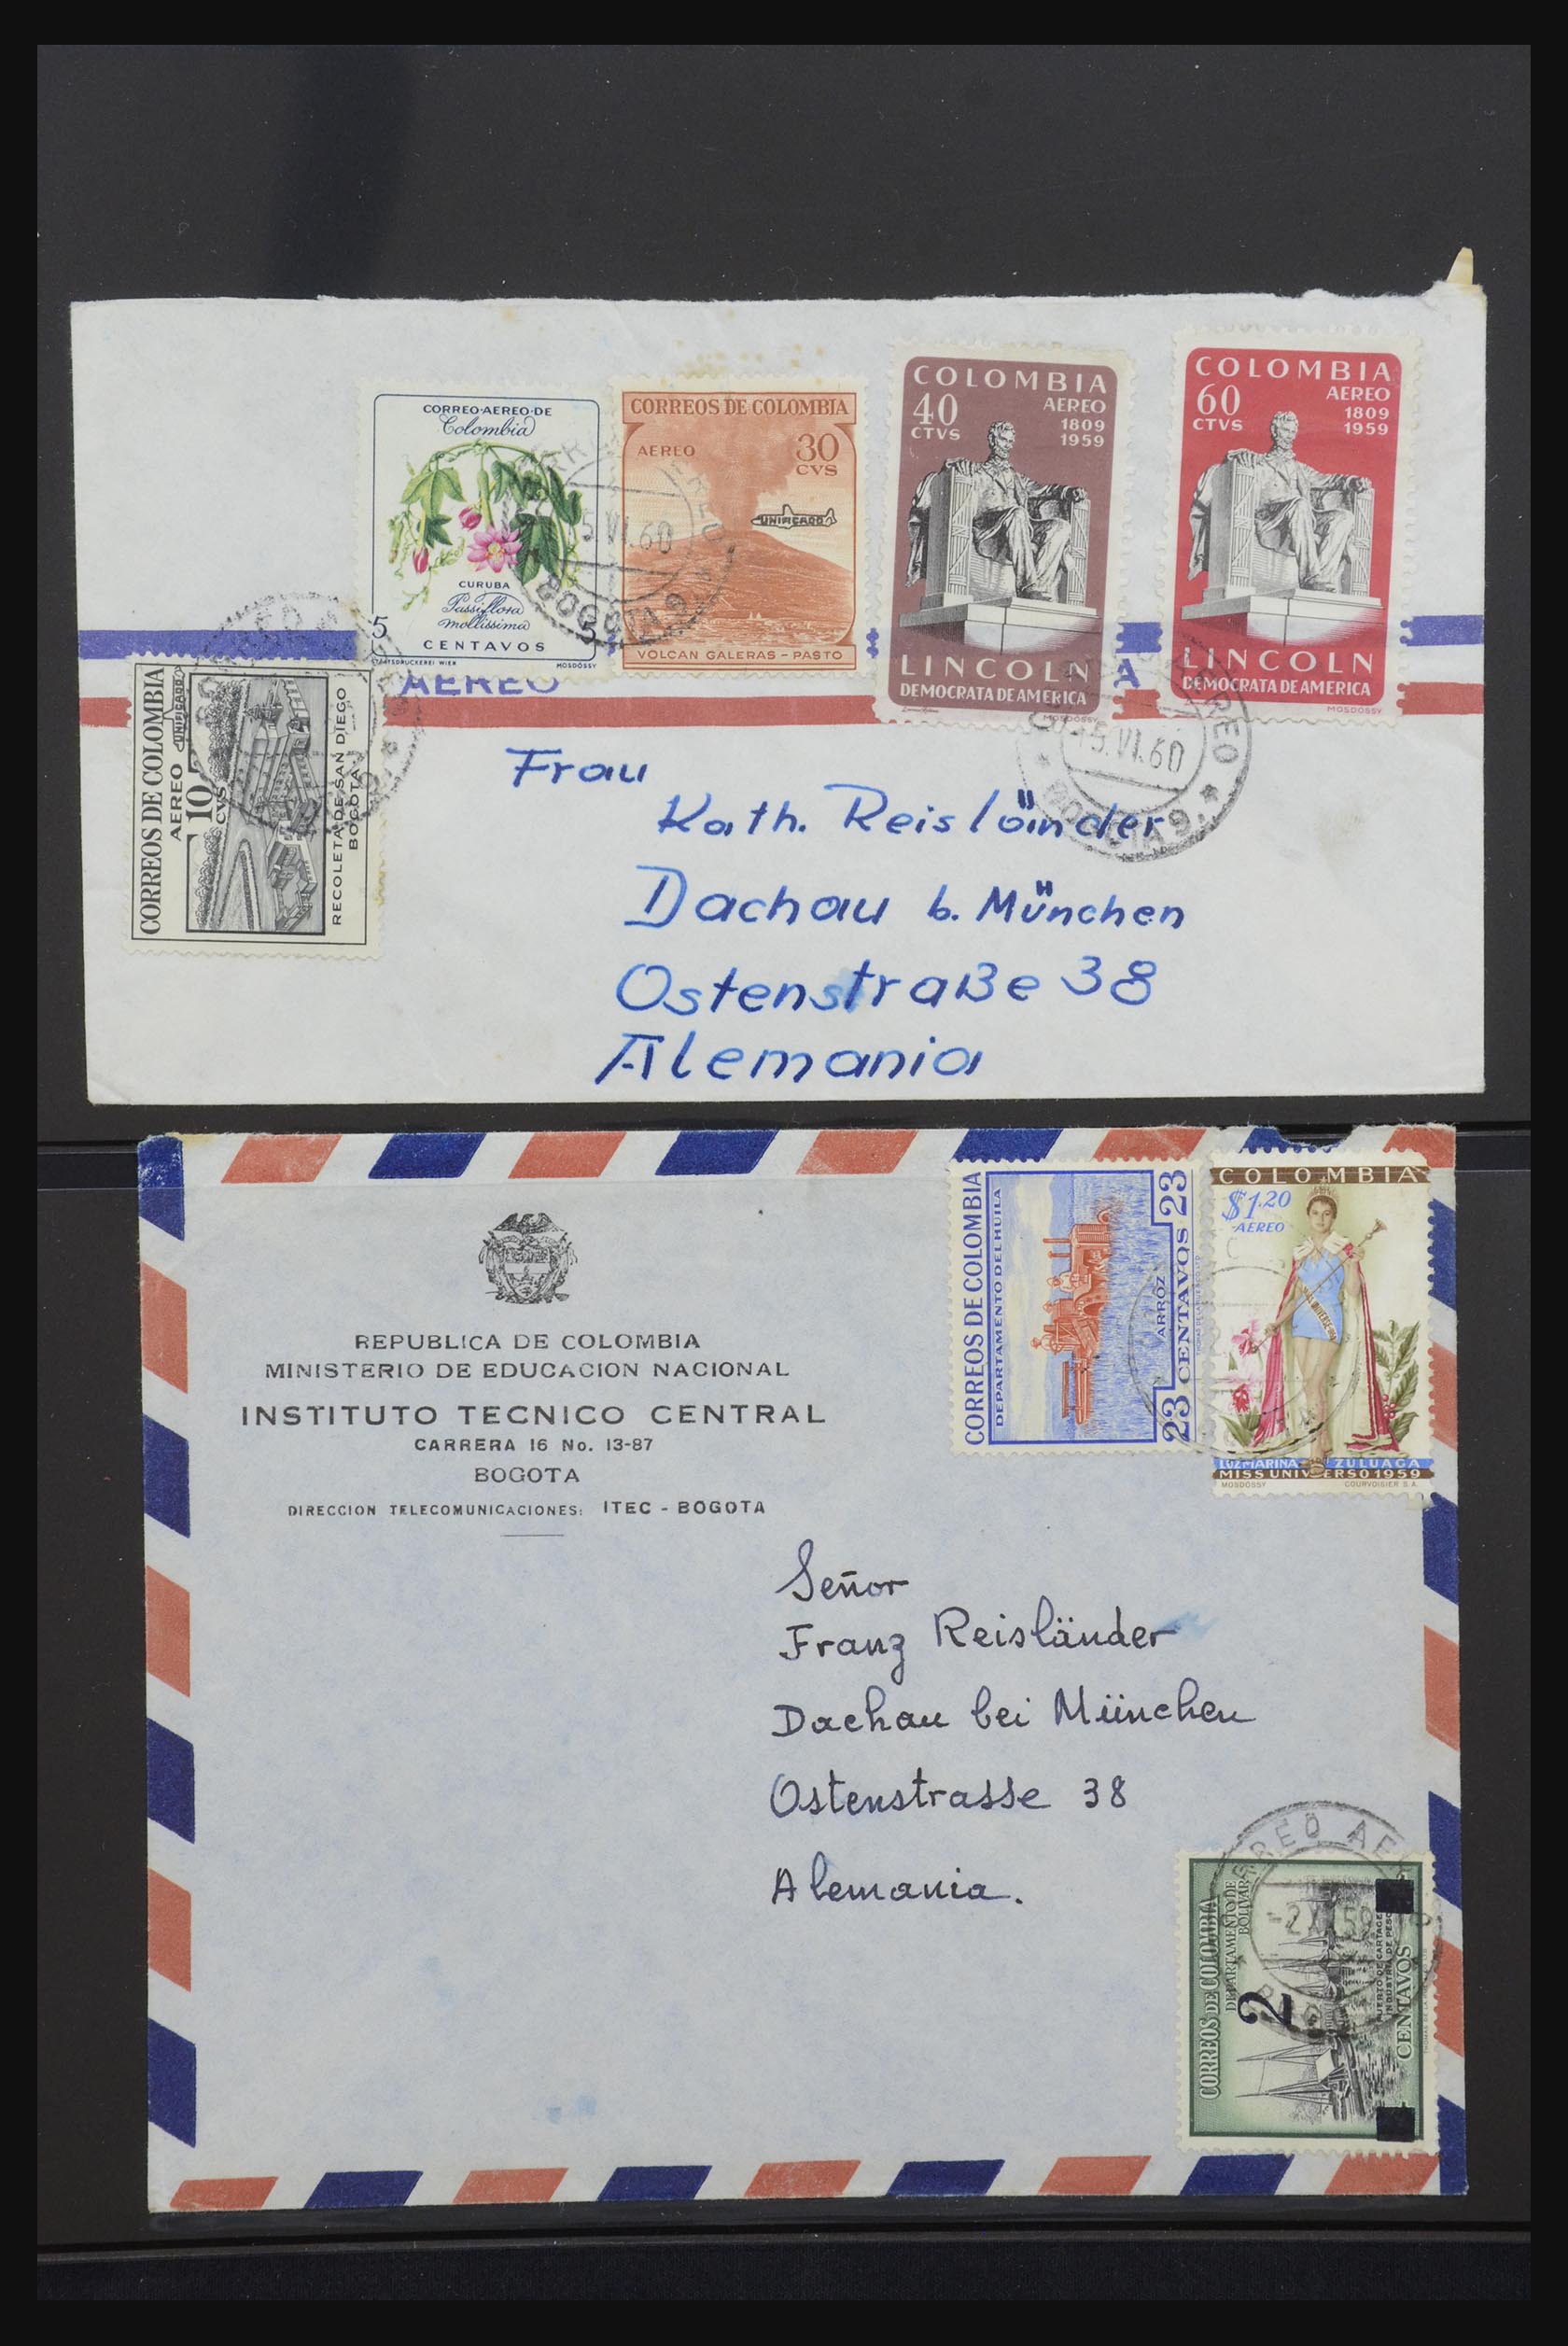 CORREO·AEREO·DE
Colombia
CURUBA
Passiflora
mollissima
5 5
CENTAVOS
STAATSDRUCKEREI WIEN MOSDÓSSY
CORREOS DE COLOMBIA
AEREO 30
CVS
UNIFICADO
VOLCAN GALERAS - PASTO
5 VI.60
BOGOTA 9
COLOMBIA
40 AEREO
CTVS 1809
1959
LINCOLN
DEMOCRATA DE AMERICA
MOSDOSSY
COLOMBIA
60 AEREO
CTVS 1809
1959
LINCOLN
DEMOCRATA DE AMERICA
MOSDOSSY
AEREO
A
CORREOS DE COLOMBIA
AEREO UNIFICADO
10
CVS
RECOLETA DE SAN DIEGO
BOGOTA
AEREO
15.VI.60
BOGOTA 9
Frau
Kath. Reisländer
Dachau b. München
Ostenstraße 38
Alemania
REPUBLICA DE COLOMBIA
MINISTERIO DE EDUCACION NACIONAL
INSTITUTO TECNICO CENTRAL
CARRERA 16 No. 13-87
BOGOTA
DIRECCION TELECOMUNICACIONES: ITEC - BOGOTA
CORREOS DE COLOMBIA
DEPARTAMENTO DEL HUILA
ARROZ
23 CENTAVOS 23
COLOMBIA
$1.20
AEREO
LUZ MARINA ZULUAGA
MISS UNIVERSO 1959
MOSDOSSY COURVOISIER S.A.
Señor
Franz Reisländer
Dachau bei München
Ostenstrasse 38
Alemania.
CORREOS DE COLOMBIA
DEPARTAMENTO DE
BOLIVAR
2
PUERTO DE CARTAGE
INDUSTRIA DE PESC
CENTAVOS